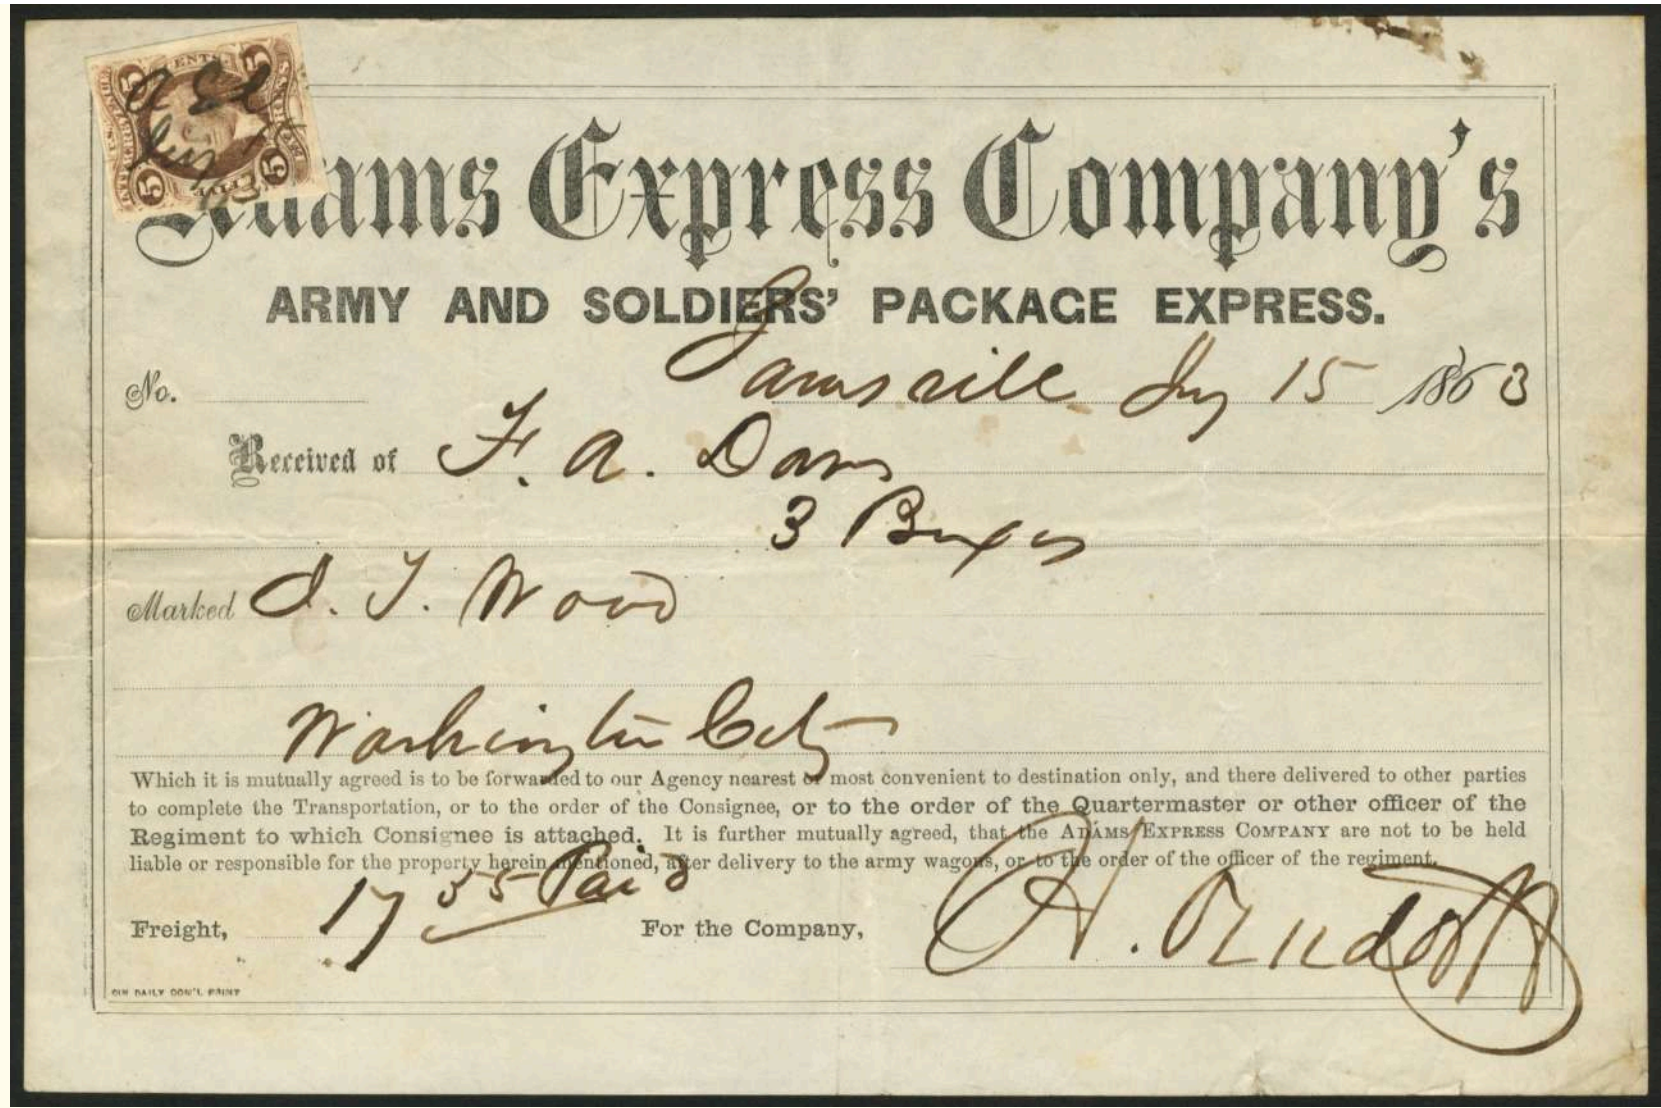 Adams Express Company's
ARMY AND SOLDIERS' PACKAGE EXPRESS.
No. 15 1863
Received of F. A. Davis
3 Boxes
Marked J. T. Wood
Washington City
Which it is mutually agreed is to be forwarded to our Agency nearest or most convenient to destination only, and there delivered to other parties
to complete the Transportation, or to the order of the Consignee, or to the order of the Quartermaster or other officer of the
Regiment to which Consignee is attached. It is further mutually agreed, that the ADAMS EXPRESS COMPANY are not to be held
liable or responsible for the property herein mentioned, after delivery to the army wagons, or to the order of the officer of the regiment.
Freight, 17 55 Paid For the Company,
CIN DAILY COM'L PRINT